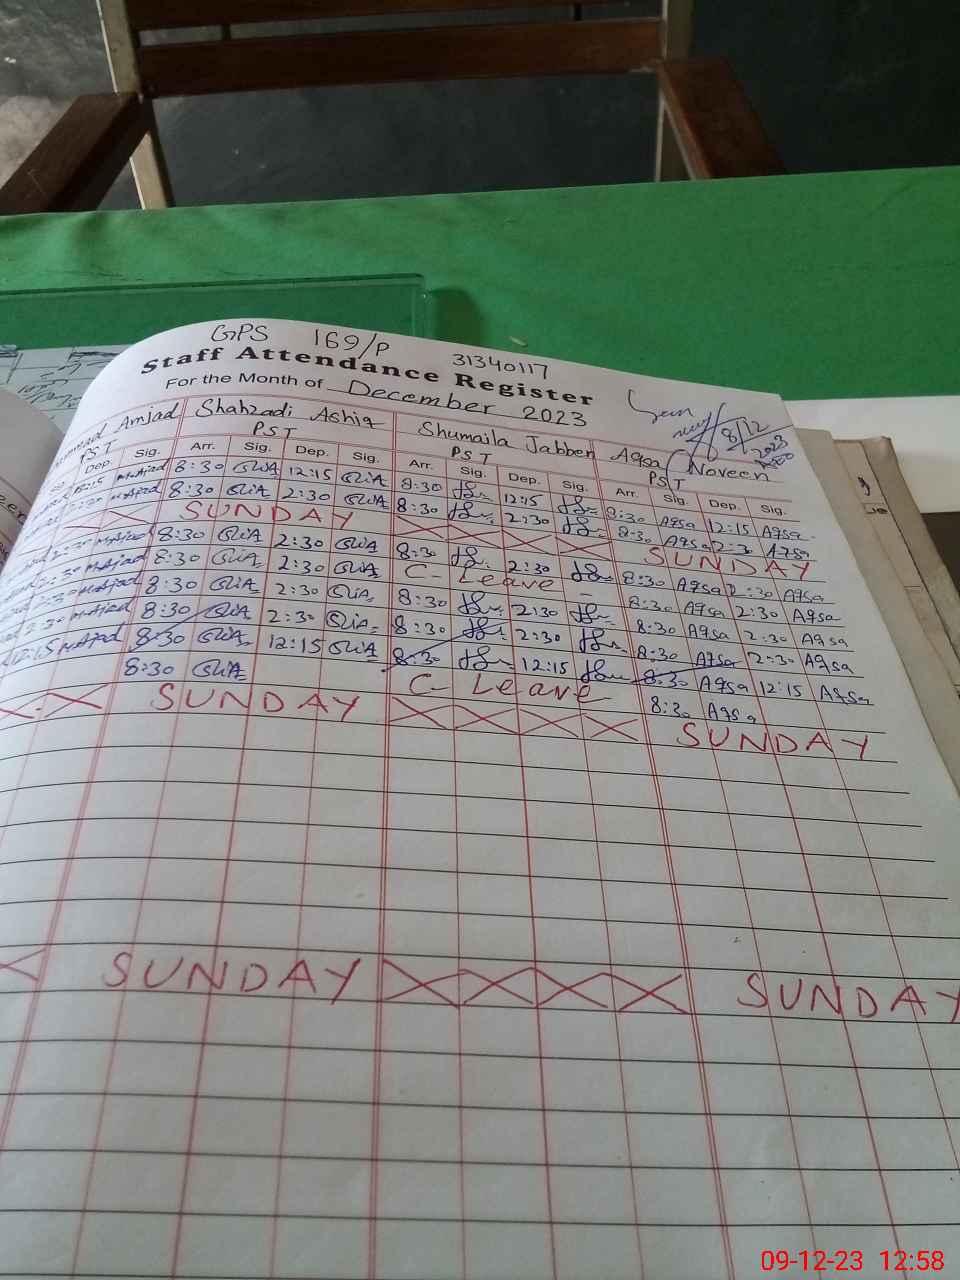 GPS 169/P 31340117
Staff Attendance Register
For the Month of December 2023
Amjad Shahzadi Ashiq Shumaila Jabben Aqsa Noveen
PST PST PST PST
8/12
2023
Dep. Sig. Arr. Sig. Dep. Sig. Arr. Sig. Dep. Sig. Arr. Sig. Dep. Sig.
12:15 M.Amjad 8:30 12:15 8:30 12:15 8:30 Aqsa 12:15 Aqsa
2:30 M.Amjad 8:30 2:30 8:30 2:30 8:30 Aqsa 2:30 Aqsa
SUNDAY SUNDAY
2:30 M.Amjad 8:30 2:30 8:30 2:30 8:30 Aqsa 2:30 Aqsa
2:30 M.Amjad 8:30 2:30 C-Leave - 8:30 Aqsa 2:30 Aqsa
2:30 M.Amjad 8:30 2:30 8:30 2:30 8:30 Aqsa 2:30 Aqsa
2:30 M.Amjad 8:30 2:30 8:30 2:30 8:30 Aqsa 2:30 Aqsa
12:15 M.Amjad 8:30 12:15 8:30 12:15 8:30 Aqsa 12:15 Aqsa
8:30 C-Leave- 8:30 Aqsa
SUNDAY SUNDAY
SUNDAY SUNDAY
09-12-23 12:58